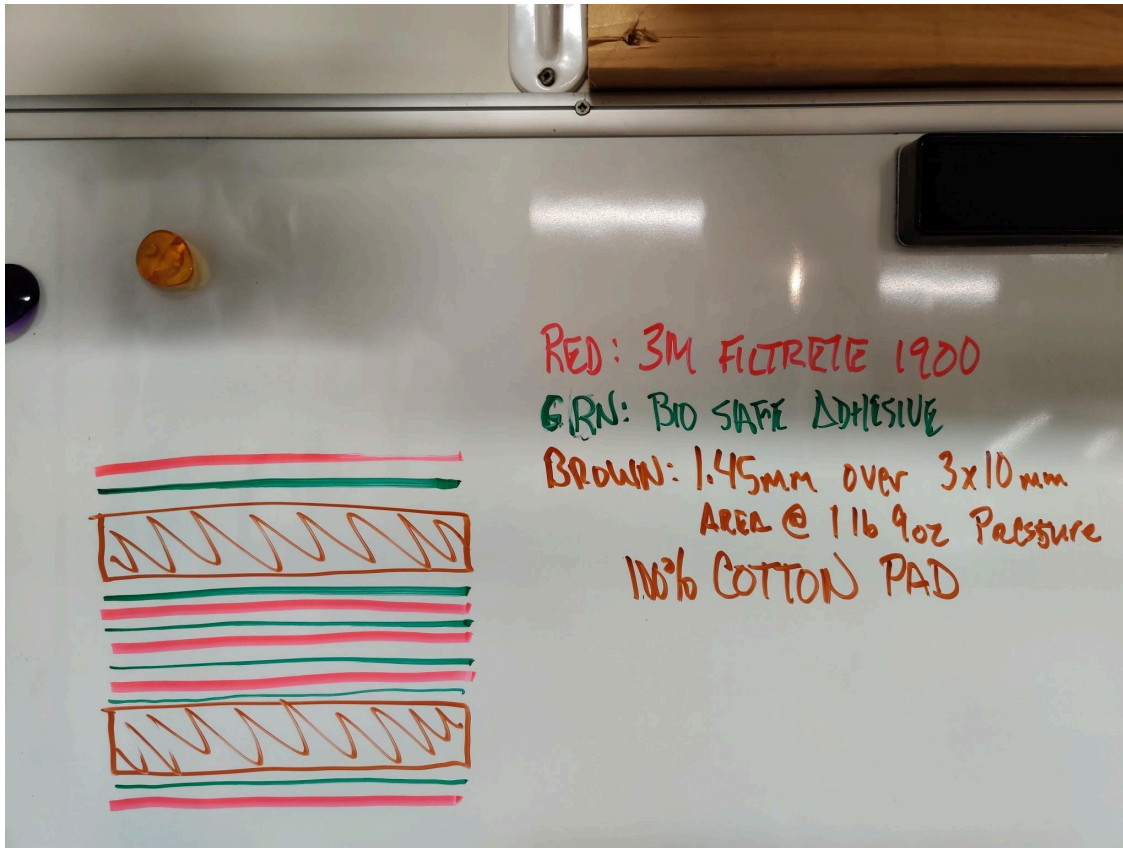 RED: 3M FILTRETE 1900
GRN: BIO SAFE ADHESIVE
BROWN: 1.45mm over 3x10mm
AREA @ 1 lb 9oz Pressure
100% COTTON PAD